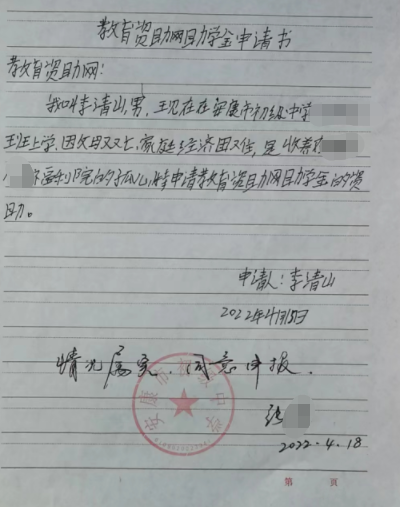 教育资助网助学金申请书
教育资助网:
我叫李清山,男,现在在安康市初级中学
班上学,因父母双亡,家庭经济困难,是收养
福利院的孤儿,特申请教育资助网助学金的资
助。
申请人:李清山
2022年4月15日
情况属实,同意申报.
张
2022.4.18
第 页